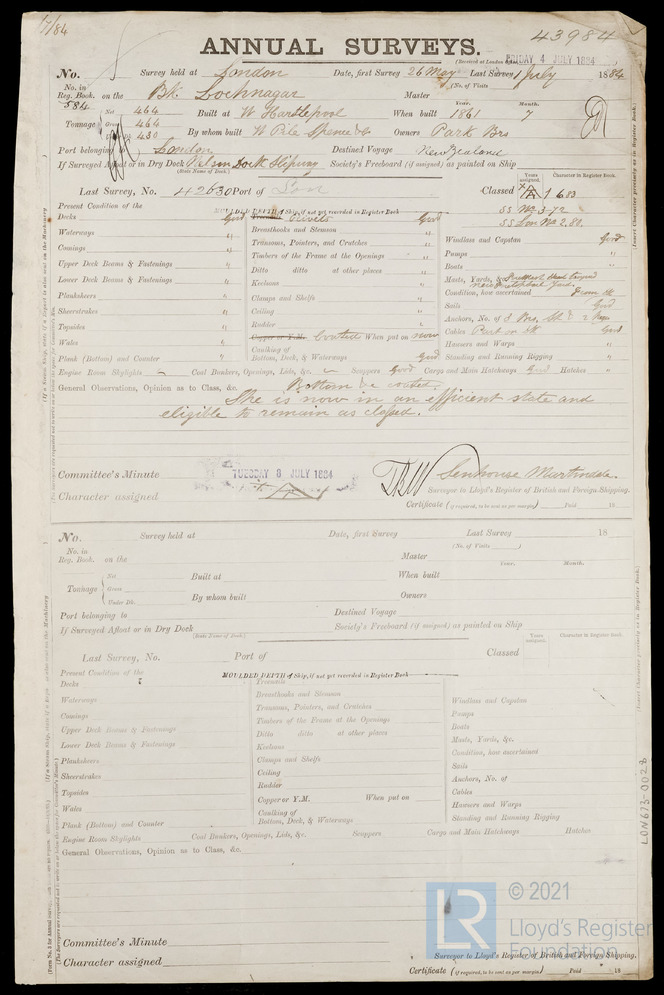 7/84
43984
ANNUAL SURVEYS.
(Received at London Office, FRIDAY 4 JULY 1884
No. Survey held at London Date, first Survey 26 May Last Survey 1 July 1884
(No. of Visits
No. in Reg. Book. 584 on the Bk Lochnagar Master
Year. Month.
Tonnage Net 464 Gross 464 430 Built at W Hartlepool When built 1861 7
By whom built W Pile Spence & Co Owners Park Bros
Port belonging to London Destined Voyage New Zealand
If Surveyed Afloat or in Dry Dock Nelson Dock Slipway Society's Freeboard (if assigned) as painted on Ship
(State Name of Dock.)
Years assigned. Character in Register Book.
Last Survey, No. 42630 Port of Lon Classed A1 6.83
SS No 3-72
SS Lon No 2.80
Present Condition of the MOULDED DEPTH of Ship, if not yet recorded in Register Book
Decks Good Rivets Good
Waterways " Breasthooks and Stemson "
Comings " Transoms, Pointers, and Crutches "
Upper Deck Beams & Fastenings " Timbers of the Frame at the Openings "
Lower Deck Beams & Fastenings " Ditto ditto at other places "
Planksheers " Keelsons "
Sheerstrakes " Clamps and Shelfs "
Topsides " Ceiling "
Wales " Rudder "
Plank (Bottom) and Counter " Copper or Y.M. Coated When put on now
Caulking of Bottom, Deck, & Waterways Good
Windlass and Capstan Good
Pumps "
Boats "
Masts, Yards, &c.
Condition, how ascertained From dk
Sails Good
Anchors, No. of 3 Brs, St. & 2 Kgs
Cables Part on dk Good
Hawsers and Warps "
Standing and Running Rigging "
Engine Room Skylights Coal Bunkers, Openings, Lids, &c. Scuppers Good Cargo and Main Hatchways Good Hatches "
General Observations, Opinion as to Class, &c. Bottom be coated.
She is now in an efficient state and
eligible to remain as classed.
Committee's Minute TUESDAY 8 JULY 1884
Senhouse Martindale.
Character assigned
Surveyor to Lloyd's Register of British and Foreign Shipping.
Certificate (if required, to be sent as per margin) Paid 18
No. Survey held at Date, first Survey Last Survey 18
(No. of Visits )
No. in Reg. Book. on the Master
Year. Month.
Tonnage Net Gross Under Dk. Built at When built
By whom built Owners
Port belonging to Destined Voyage
If Surveyed Afloat or in Dry Dock Society's Freeboard (if assigned) as painted on Ship
(State Name of Dock.)
Years assigned. Character in Register Book.
Last Survey, No. Port of Classed
Present Condition of the MOULDED DEPTH of Ship, if not yet recorded in Register Book
Decks Treenails
Waterways Breasthooks and Stemson
Comings Transoms, Pointers, and Crutches
Upper Deck Beams & Fastenings Timbers of the Frame at the Openings
Lower Deck Beams & Fastenings Ditto ditto at other places
Planksheers Keelsons
Sheerstrakes Clamps and Shelfs
Topsides Ceiling
Wales Rudder
Plank (Bottom) and Counter Copper or Y.M. When put on
Caulking of Bottom, Deck, & Waterways
Windlass and Capstan
Pumps
Boats
Masts, Yards, &c.
Condition, how ascertained
Sails
Anchors, No. of
Cables
Hawsers and Warps
Standing and Running Rigging
Engine Room Skylights Coal Bunkers, Openings, Lids, &c. Scuppers Cargo and Main Hatchways Hatches
General Observations, Opinion as to Class, &c.
Committee's Minute
Character assigned
Surveyor to Lloyd's Register of British and Foreign Shipping.
Certificate (if required, to be sent as per margin) Paid 18
LON673-0028
LR
© 2021
Lloyd's Register
Foundation